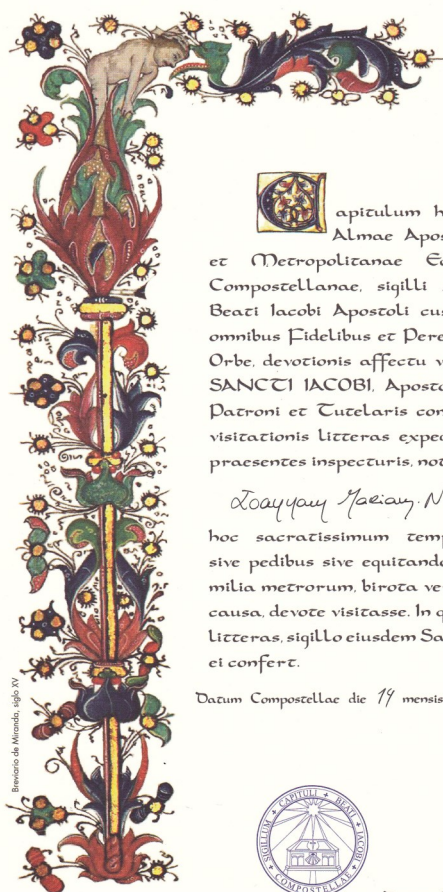 Capitulum h
Almae Apos
et Metropolitanae Ec
Compostellanae, sigilli
Beati Iacobi Apostoli cus
omnibus Fidelibus et Pere
Orbe, devotionis affectu v
SANCTI IACOBI, Aposto
Patroni et Tutelaris con
visitationis litteras exped
praesentes inspecturis, not
hoc sacratissimum temp
sive pedibus sive equitando
milia metrorum, birota ve
causa, devote visitasse. In q
litteras, sigillo eiusdem Sa
ei confert.
Datum Compostellae die 19 mensis
Breviario de Miranda, siglo XV
SIGILLUM + CAPITULI + BEATI + IACOBI + COMPOSTELLAE +